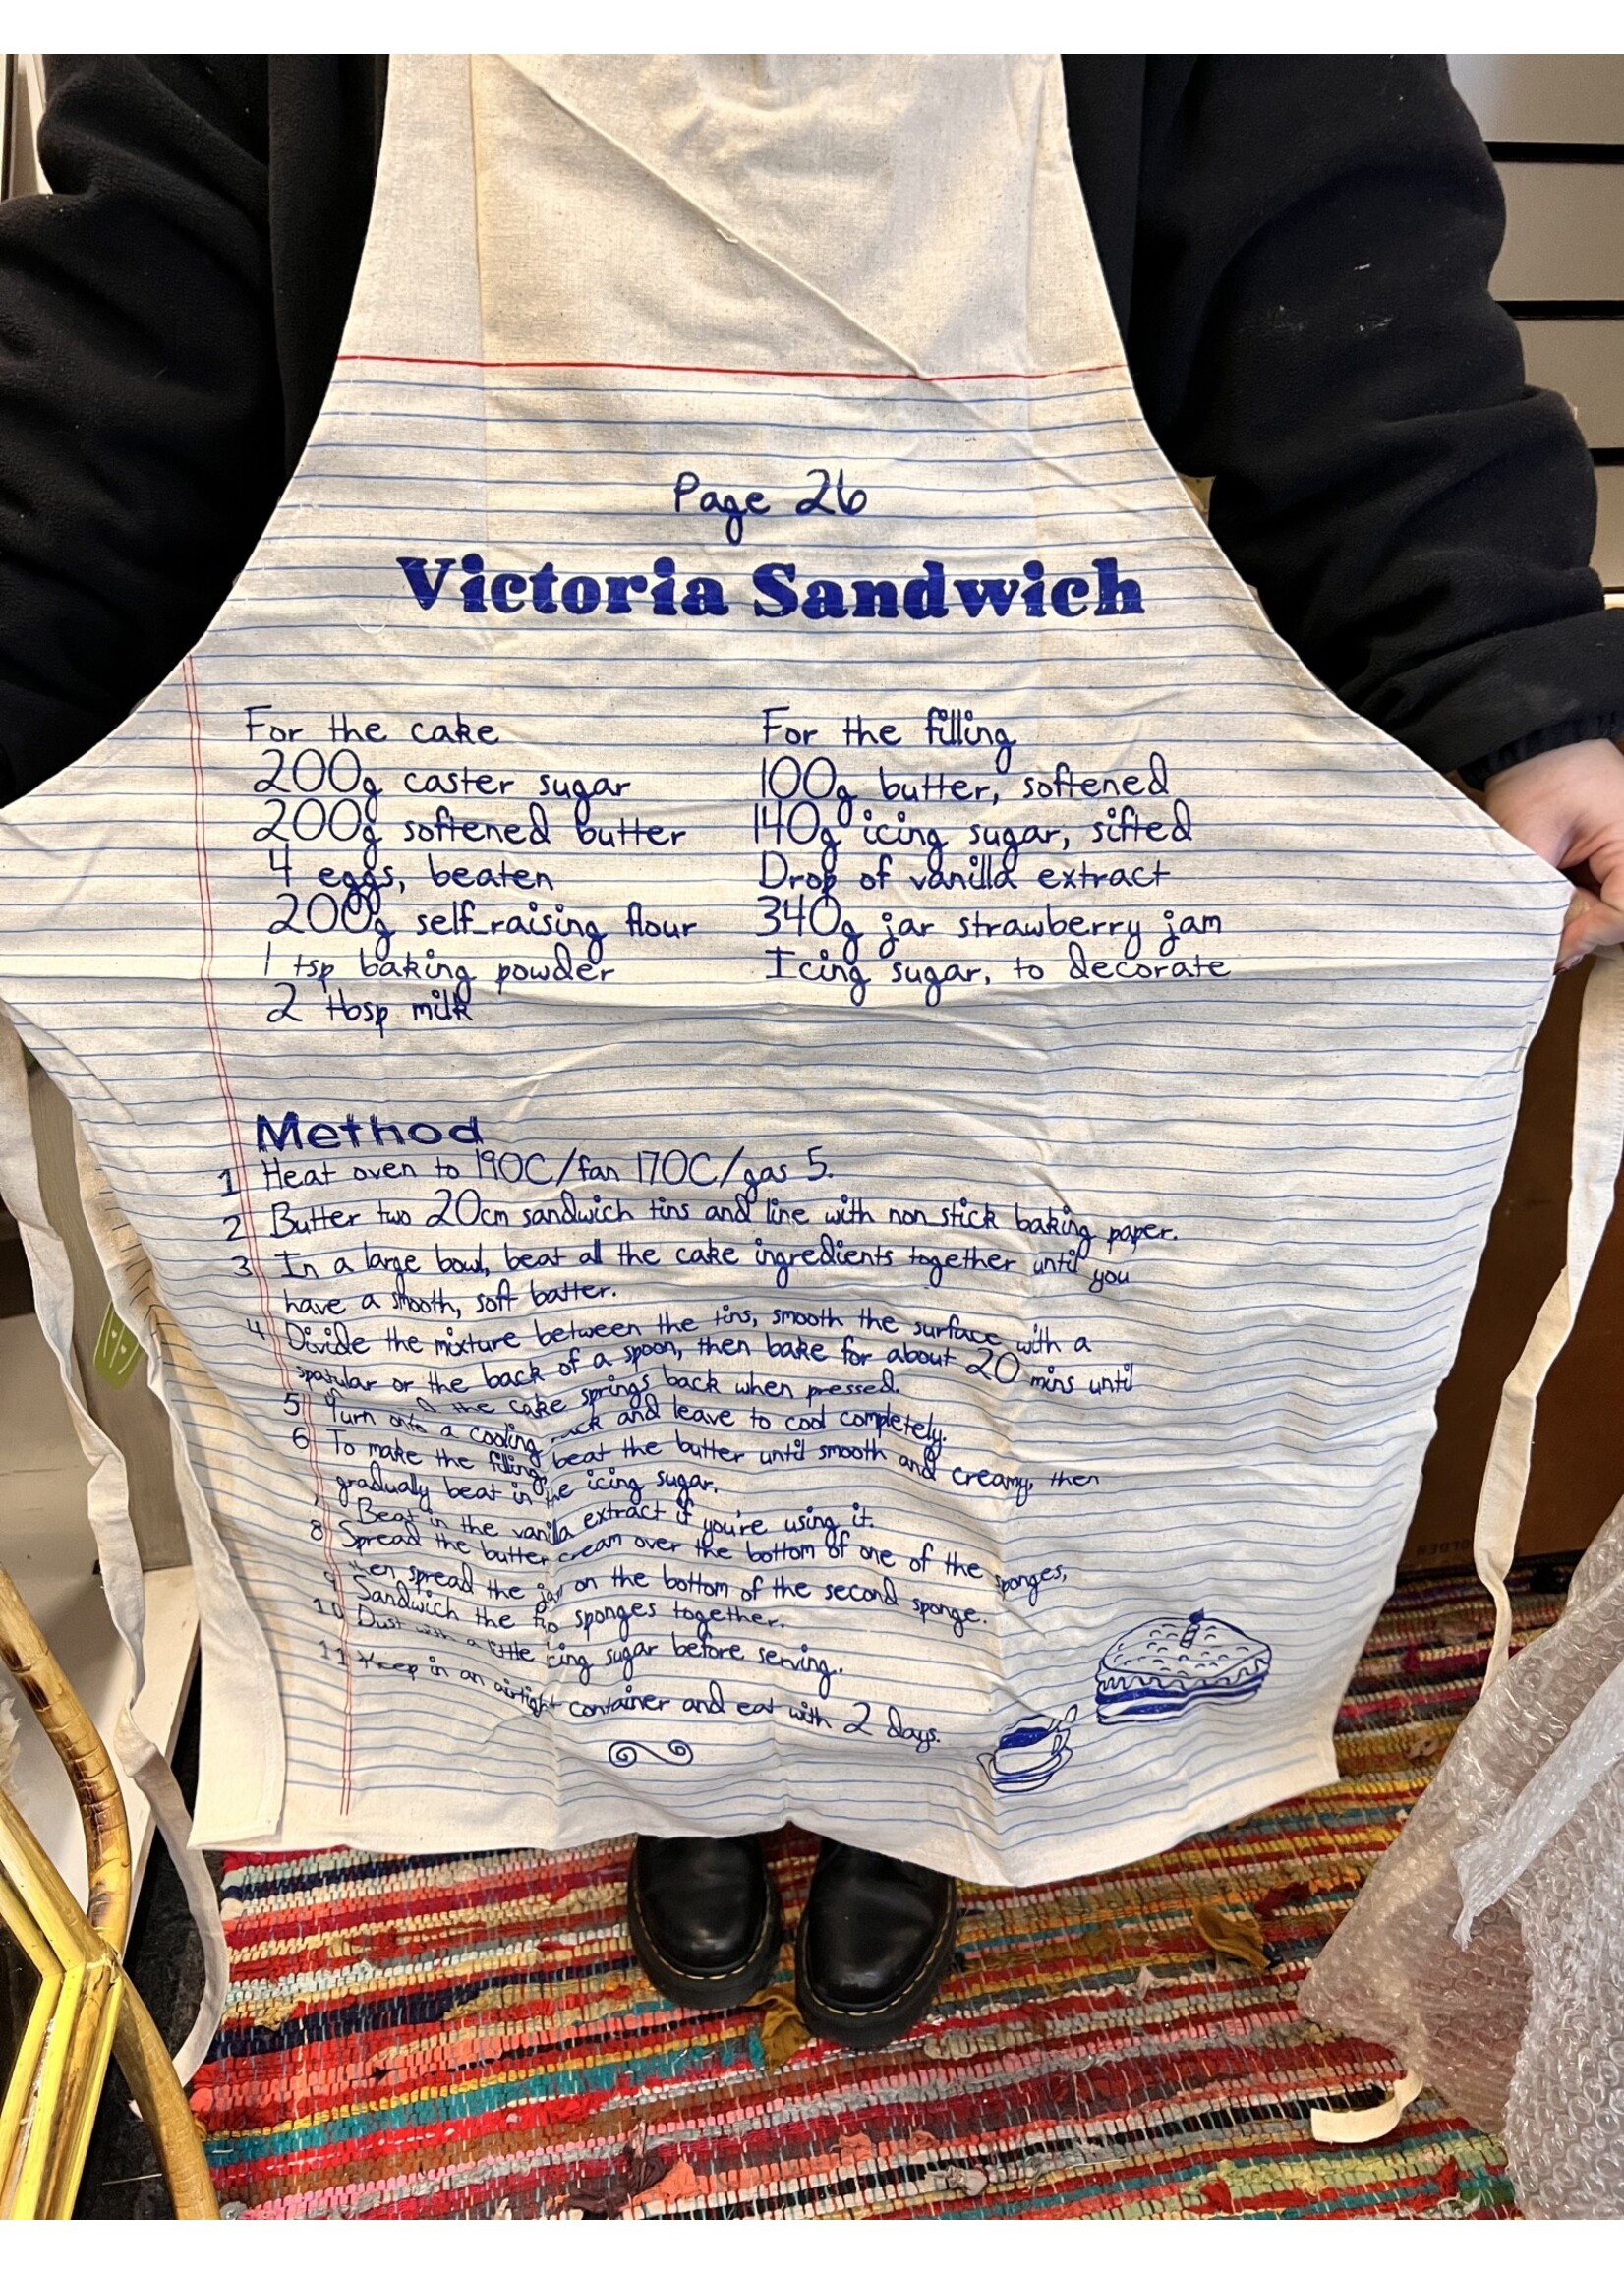 Page 26
Victoria Sandwich
For the cake
200g caster sugar
200g softened butter
4 eggs, beaten
200g self-raising flour
1 tsp baking powder
2 tbsp milk
For the filling
100g butter, softened
140g icing sugar, sifted
Drop of vanilla extract
340g jar strawberry jam
Icing sugar, to decorate
Method
1 Heat oven to 190C/fan 170C/gas 5.
2 Butter two 20cm sandwich tins and line with non-stick baking paper.
3 In a large bowl, beat all the cake ingredients together until you
have a smooth, soft batter.
4 Divide the mixture between the tins, smooth the surface with a
spatular or the back of a spoon, then bake for about 20 mins until
the cake springs back when pressed.
5 Turn onto a cooling rack and leave to cool completely.
6 To make the filling, beat the butter until smooth and creamy, then
gradually beat in the icing sugar.
Beat in the vanilla extract if you're using it.
8 Spread the butter cream over the bottom of one of the sponges,
spread the jam on the bottom of the second sponge.
9 Sandwich the two sponges together.
10 Dust with a little icing sugar before serving.
11 Keep in an airtight container and eat with 2 days.